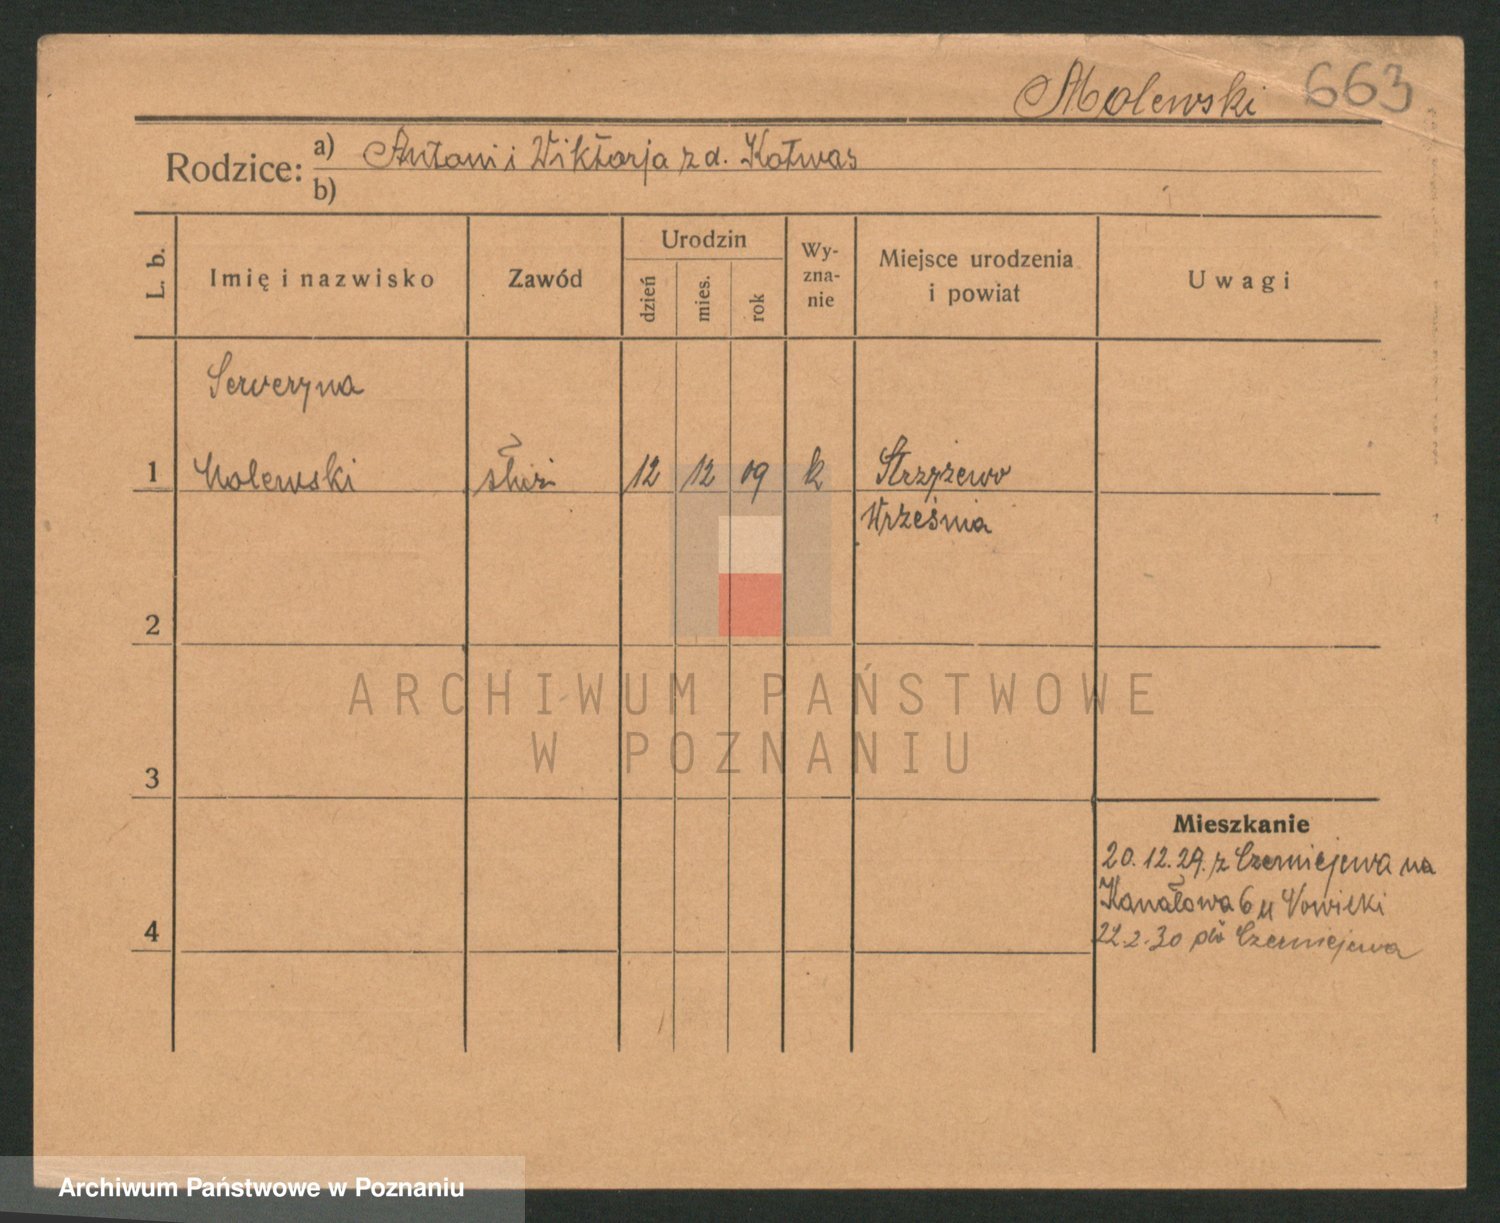 Molewski 663
Rodzice: a) Antoni i Wiktorja z d. Kotwas
b)
L. b.
Imię i nazwisko
Zawód
Urodzin
dzień
mies.
rok
Wy-
zna-
nie
Miejsce urodzenia
i powiat
Uwagi
Serweryna
1 Molewski służ 12 12 09 k Strzyżewo
Września
2
3
Mieszkanie
20.12.29. z Czerniejewa na
Kanałowa 6 u
4
22.2.30 do Czerniejewa
ARCHIWUM PAŃSTWOWE
W POZNANIU
Archiwum Państwowe w Poznaniu